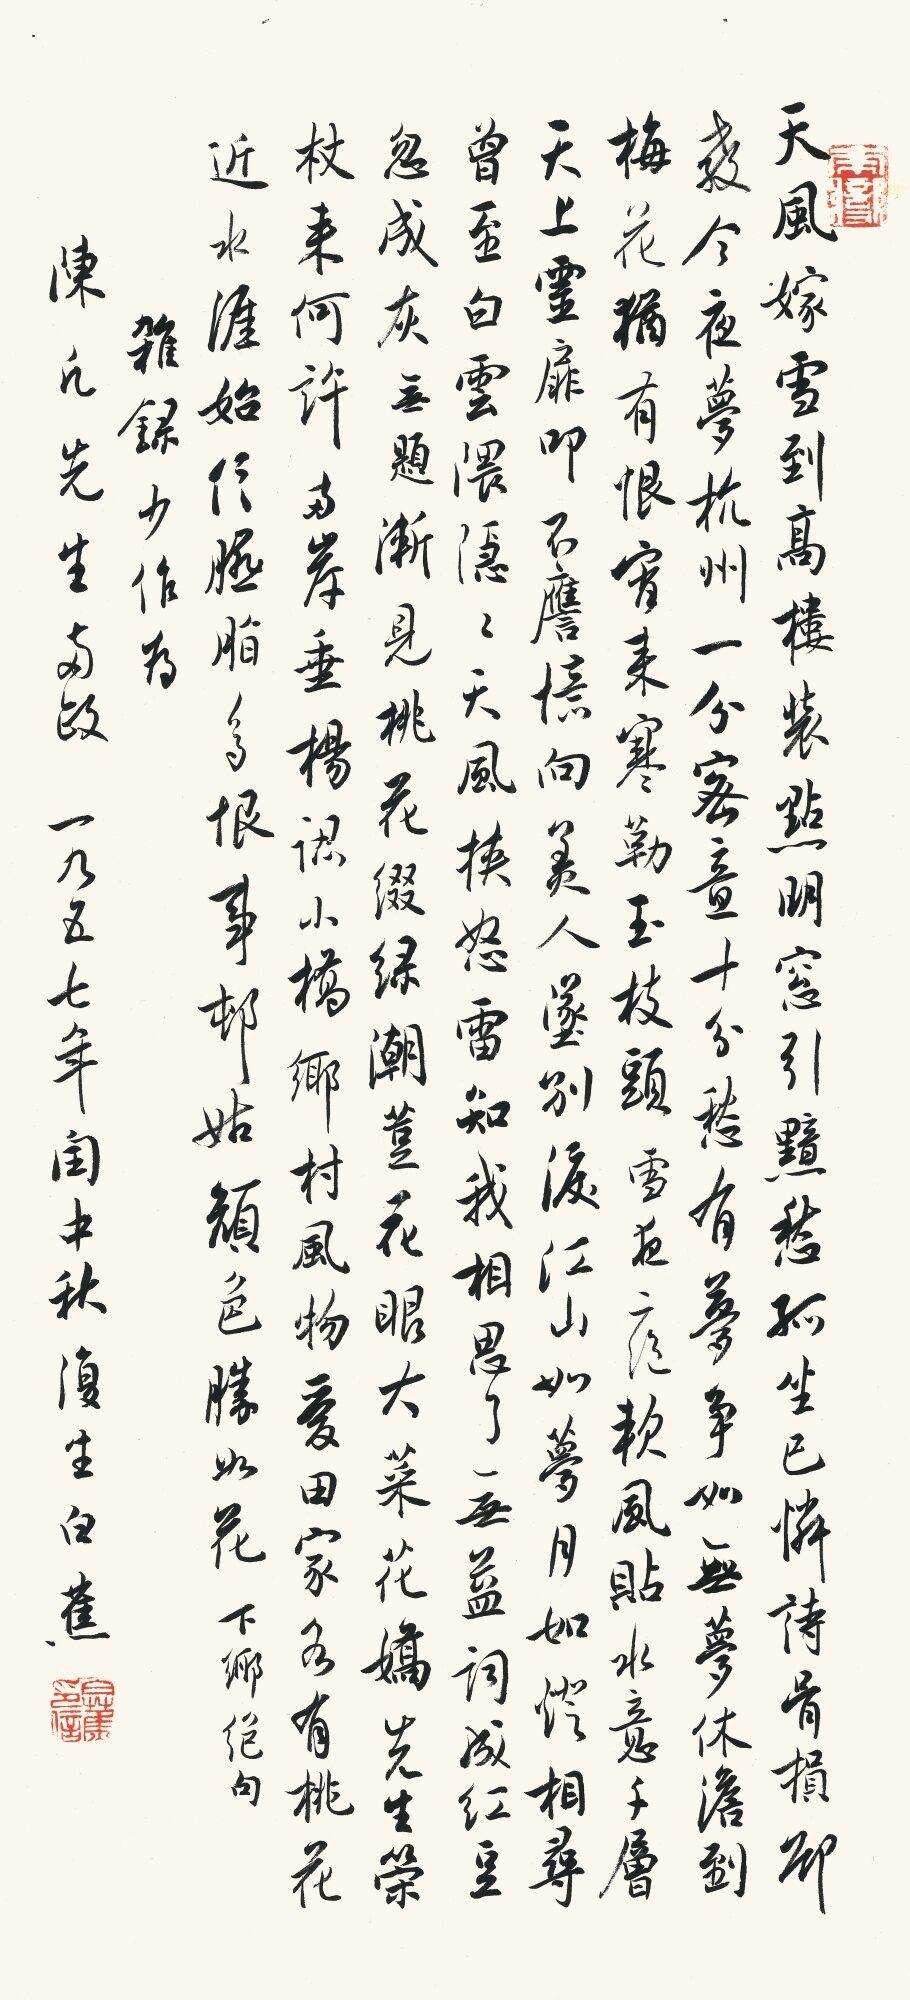 天風嫁雪到高樓裝點明窓引黯愁孤坐已憐詩骨損那
教今夜夢杭州一分密意十分愁有夢争如無夢休澹到
梅花猶有恨宵来寒勒玉枝頭 雪夜二绝 軟風貼水意千層
天上靈扉叩不譍憶向美人墜别淚江山如夢月如燈相尋
曾至白雲隈隱〻天風挟怒雷知我相思了無益詞成红豆
忽成灰 無題 漸見桃花缀绿潮荳花眼大菜花嬌先生策
杖来何許两岸垂楊認小橋鄉村風物爱田家多有桃花
近水涯始信胭脂多恨事邨姑顏色勝如花 下鄉絕句
雜録少作為
陳凡先生两政 一九五七年閏中秋後生白蕉